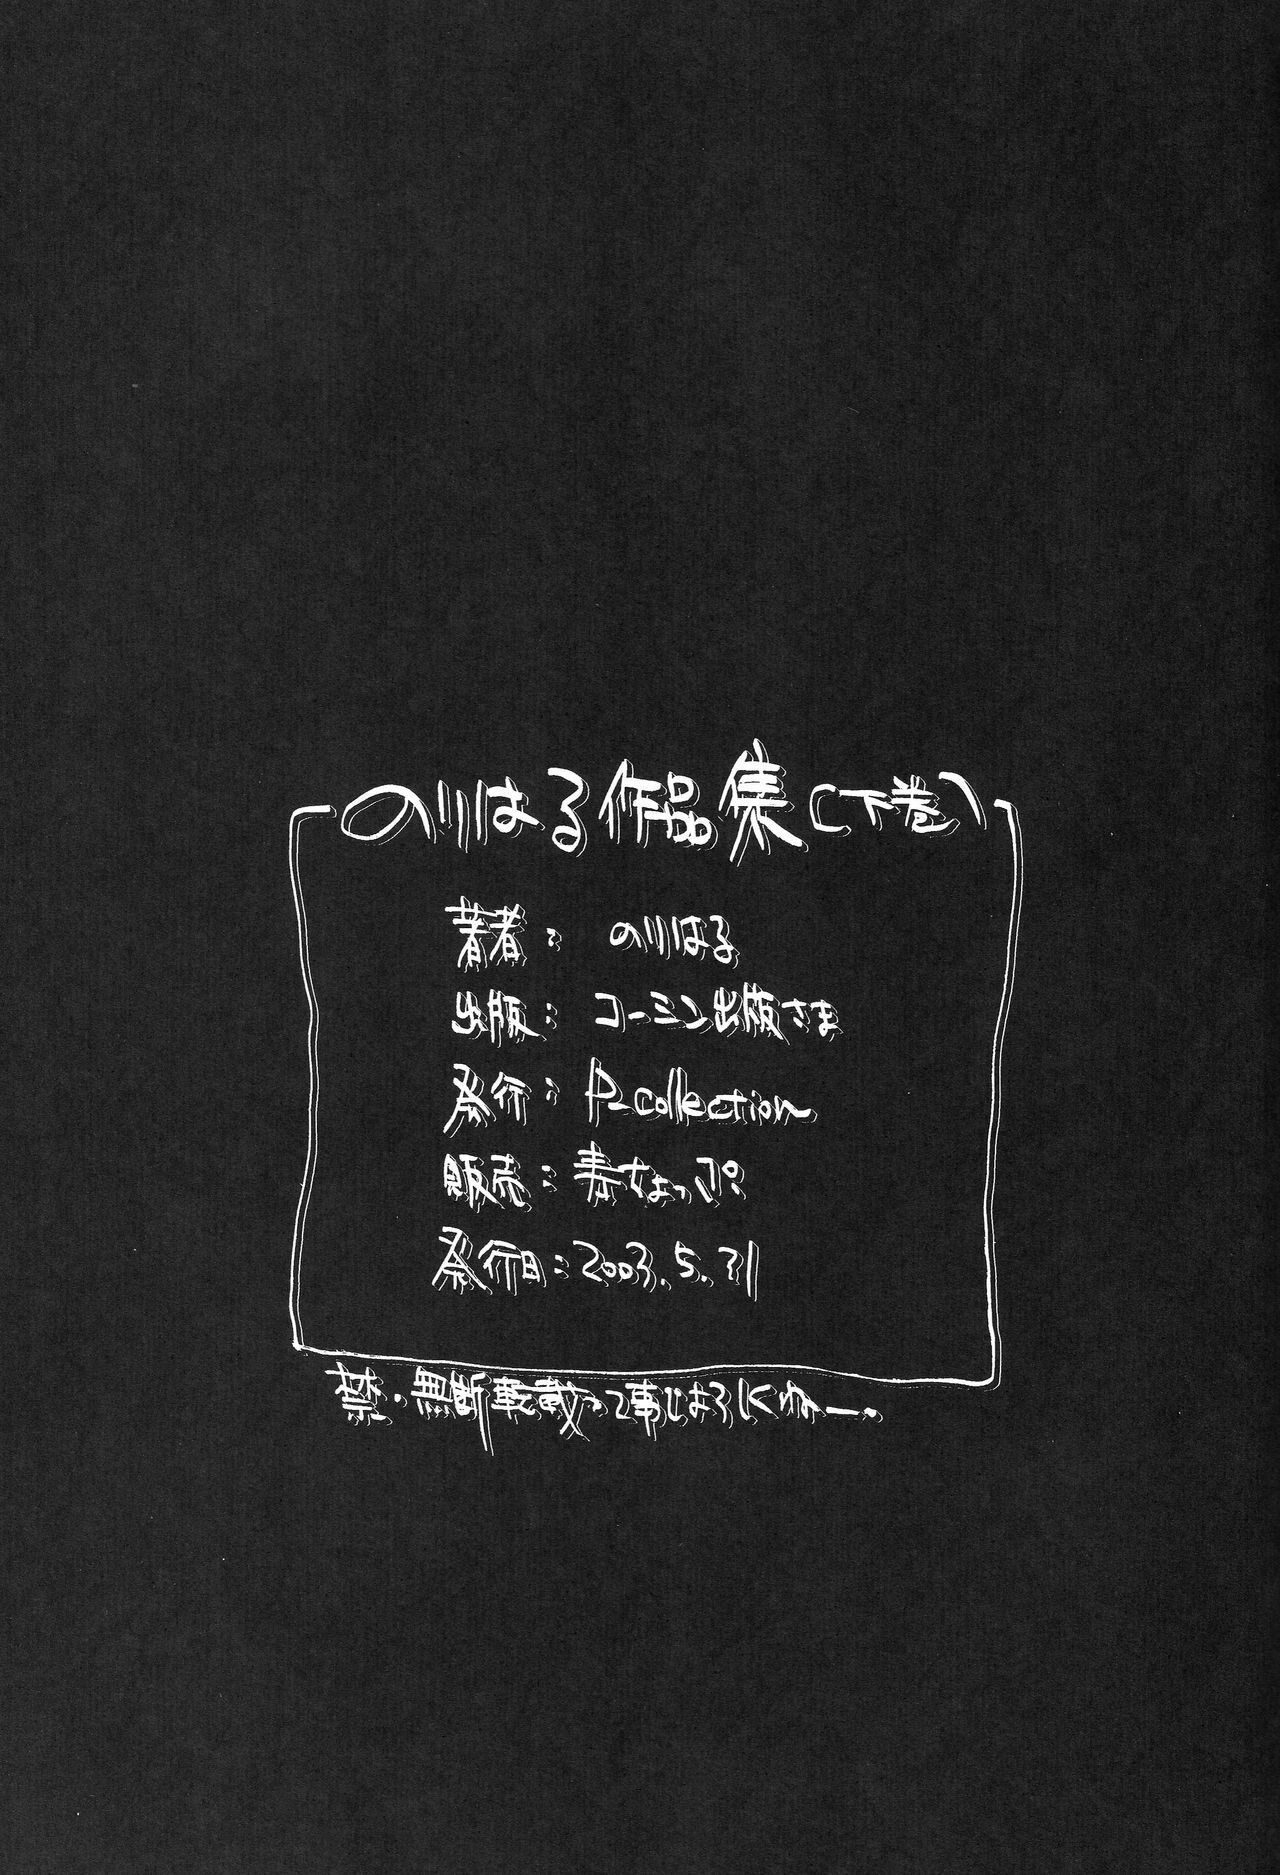 のりはる作品集(下巻)
著者: のりはる
出版: コーミン出版さま
発行: P-collection
販売: 毒ちょっぷ
発行日: 2003.5.31
禁・無断転載って事じゃろにゃー.